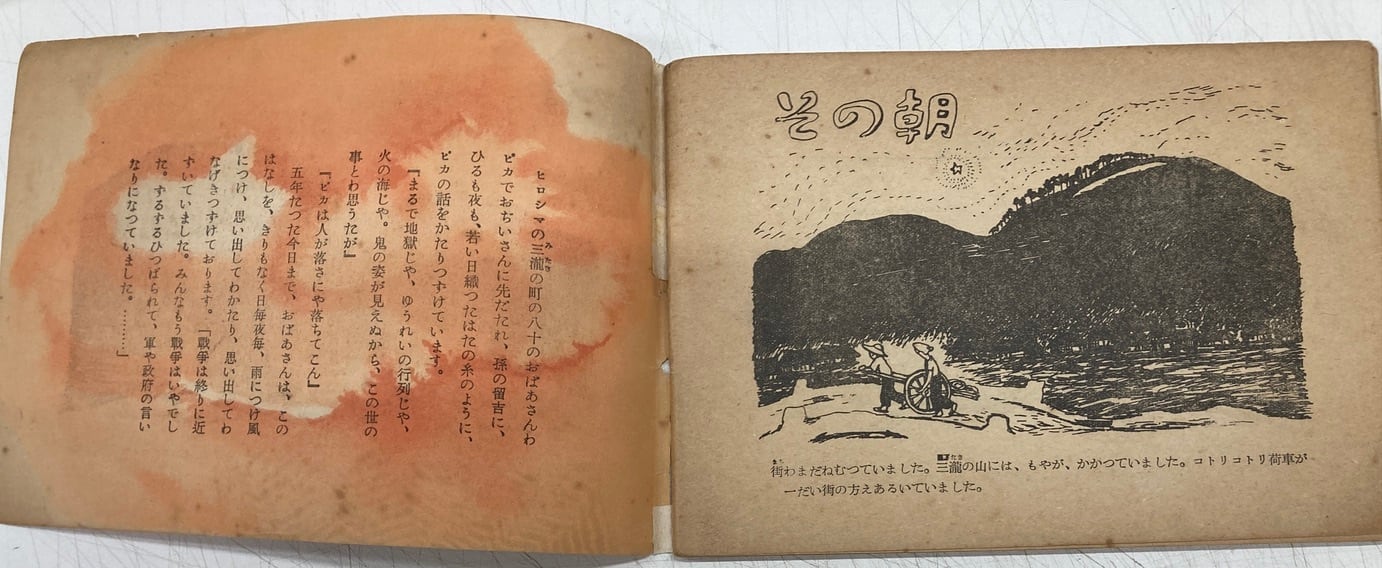 ヒロシマの三瀧の町の八十のおばあさんわ
ピカでおぢいさんに先だたれ、孫の留吉に、
ひるも夜も、若い日織つたはたの糸のように、
ピカの話をかたりつずけています。
『まるで地獄じや、ゆうれいの行列じや、
火の海じや。鬼の姿が見えぬから、この世の
事とわ思うたが』
『ピカは人が落さにや落ちてこん』
五年たつた今日まで、おばあさんは、この
はなしを、きりもなく日毎夜毎、雨につけ風
につけ、思い出してわかたり、思い出してわ
なげきつずけております。「戰爭は終りに近
ずいていました。みんなもう戰爭はいやでし
た。ずるずるひつぱられて、軍や政府の言い
なりになつていました。………」
みたき
その朝
街わまだねむつていました。三瀧の山には、もやが、かかつていました。コトリコトリ荷車が
一だい街の方えあるいていました。
まち
たき